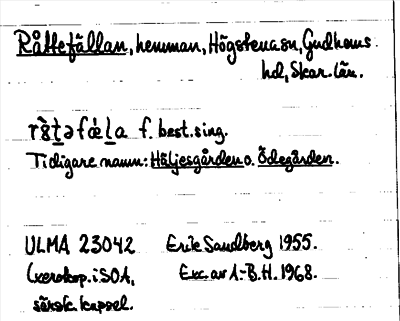 Råttefällan, hemman, Högstena sn, Gudhems
hd, Skar. län.
rå̀t̲əfǽl̲a f. best. sing.
Tidigare namn: Häljesgården o. Ödegården.
ULMA 23042 Erik Sandberg 1955.
(xerokop. i SOA, Exc. av A-B.H. 1968.
särsk. kapsel.